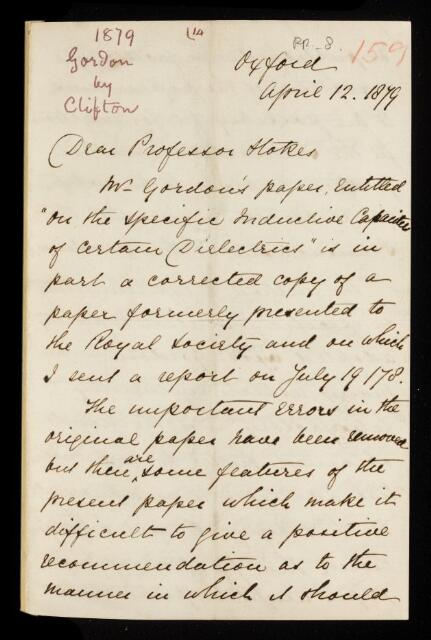 1879
Gordon
by
Clifton
RR_8
159
Oxford
April 12. 1879
Dear Professor Stokes
Mr Gordon's paper, Entitled
"on the specific Inductive Capacities
of certain Dielectrics" is in
part a corrected copy of a
paper formerly presented to
the Royal Society and on which
I sent a report on July 19 '78.
The important Errors in the
original paper have been removed
but there are some features of the
present paper which make it
difficult to give a positive
recommendation as to the
manner in which it should